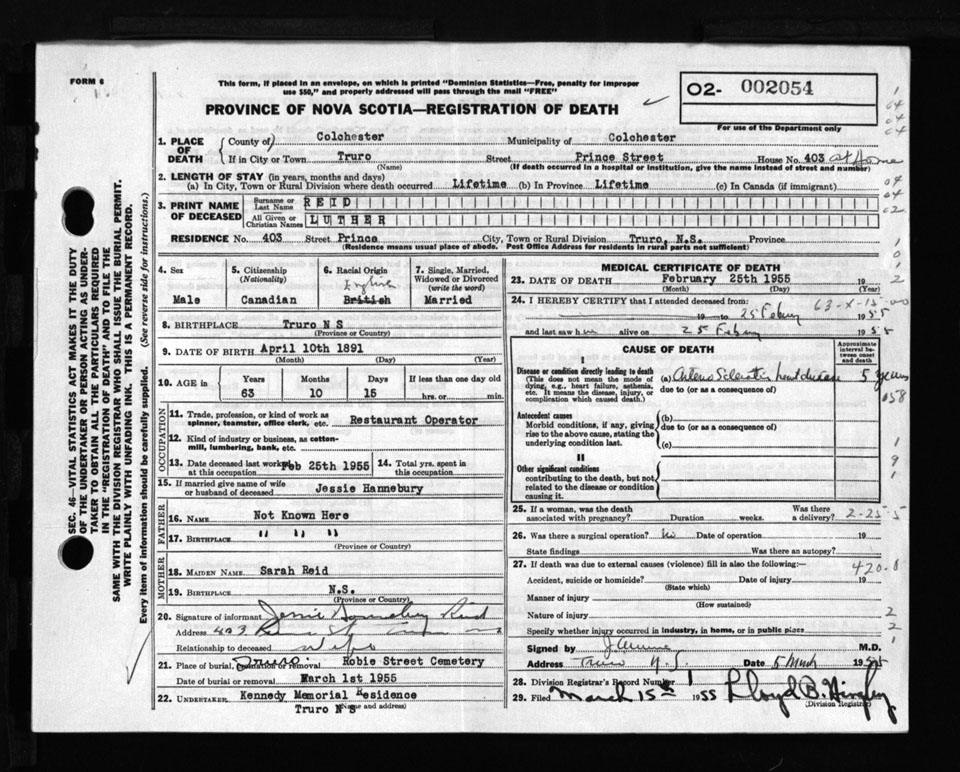 FORM 6
This form, if placed in an envelope, on which is printed "Dominion Statistics—Free, penalty for improper
use $50," and properly addressed will pass through the mail "FREE"
PROVINCE OF NOVA SCOTIA—REGISTRATION OF DEATH
O2- 002054
For use of the Department only
1. PLACE OF DEATH
County of Colchester Municipality of Colchester
If in City or Town Truro Street Prince Street House No. 403 at Home
(Name) (If death occurred in a hospital or institution, give the name instead of street and number)
2. LENGTH OF STAY (in years, months and days)
(a) In City, Town or Rural Division where death occurred Lifetime (b) In Province Lifetime (c) In Canada (if immigrant)
3. PRINT NAME OF DECEASED
Surname or Last Name REID
All Given or Christian Names LUTHER
RESIDENCE No. 403 Street Prince City, Town or Rural Division Truro, N.S. Province
(Residence means usual place of abode. Post Office Address for residents in rural parts not sufficient)
4. Sex
Male
5. Citizenship
(Nationality)
Canadian
6. Racial Origin
English
British
7. Single, Married,
Widowed or Divorced
(write the word)
Married
8. BIRTHPLACE Truro N S
(Province or Country)
9. DATE OF BIRTH April 10th 1891
(Month) (Day) (Year)
10. AGE in Years Months Days If less than one day old
63 10 15 hrs. or min.
OCCUPATION
11. Trade, profession, or kind of work as
spinner, teamster, office clerk, etc. Restaurant Operator
12. Kind of industry or business, as cotton-
mill, lumbering, bank, etc.
13. Date deceased last worked
at this occupation Feb 25th 1955
14. Total yrs. spent in
this occupation
15. If married give name of wife
or husband of deceased Jessie Hannebury
FATHER
16. NAME Not Known Here
17. BIRTHPLACE " " "
(Province or Country)
MOTHER
18. MAIDEN NAME Sarah Reid
19. BIRTHPLACE N.S.
(Province or Country)
20. Signature of informant Reid
Address 403
Relationship to deceased Wife
21. Place of burial, cremation or removal Truro Robie Street Cemetery
Date of burial or removal March 1st 1955
22. UNDERTAKER Kennedy Memorial Residence
Truro N S
(Name and address)
MEDICAL CERTIFICATE OF DEATH
23. DATE OF DEATH February 25th 1955 19
(Month) (Day) (Year)
24. I HEREBY CERTIFY that I attended deceased from:
63-X-15-00
19 to 25 1955
and last saw him alive on 25 1955
CAUSE OF DEATH
Approximate
interval be-
tween onset
and death
I
Disease or condition directly leading to death
(This does not mean the mode of
dying, e.g., heart failure, asthenia,
etc. It means the disease, injury, or
complication which caused death.)
(a) heart disease 5 years
due to (or as a consequence of)
058
Antecedent causes
Morbid conditions, if any, giving
rise to the above cause, stating the
underlying condition last.
(b)
due to (or as a consequence of)
(c)
II
Other significant conditions
contributing to the death, but not
related to the disease or condition
causing it.
25. If a woman, was the death
associated with pregnancy? Duration weeks. Was there
a delivery? 2-25-5
26. Was there a surgical operation? No Date of operation 19
State findings Was there an autopsy?
27. If death was due to external causes (violence) fill in also the following:—
420.0
Accident, suicide or homicide? Date of injury 19
(State which)
Manner of injury
(How sustained)
Nature of injury
Specify whether injury occurred in industry, in home, or in public place
Signed by M.D.
Address Truro N.S. Date 5 March 1955
28. Division Registrar's Record Number
29. Filed March 15th 1955 Lloyd B.
(Division Registrar)
SEC. 46—VITAL STATISTICS ACT MAKES IT THE DUTY
OF THE UNDERTAKER OR PERSON ACTING AS UNDER-
TAKER TO OBTAIN ALL THE PARTICULARS REQUIRED
IN THE "REGISTRATION OF DEATH" AND TO FILE THE
SAME WITH THE DIVISION REGISTRAR WHO SHALL ISSUE THE BURIAL PERMIT.
WRITE PLAINLY WITH UNFADING INK. THIS IS A PERMANENT RECORD.
Every item of information should be carefully supplied. (See reverse side for instructions.)